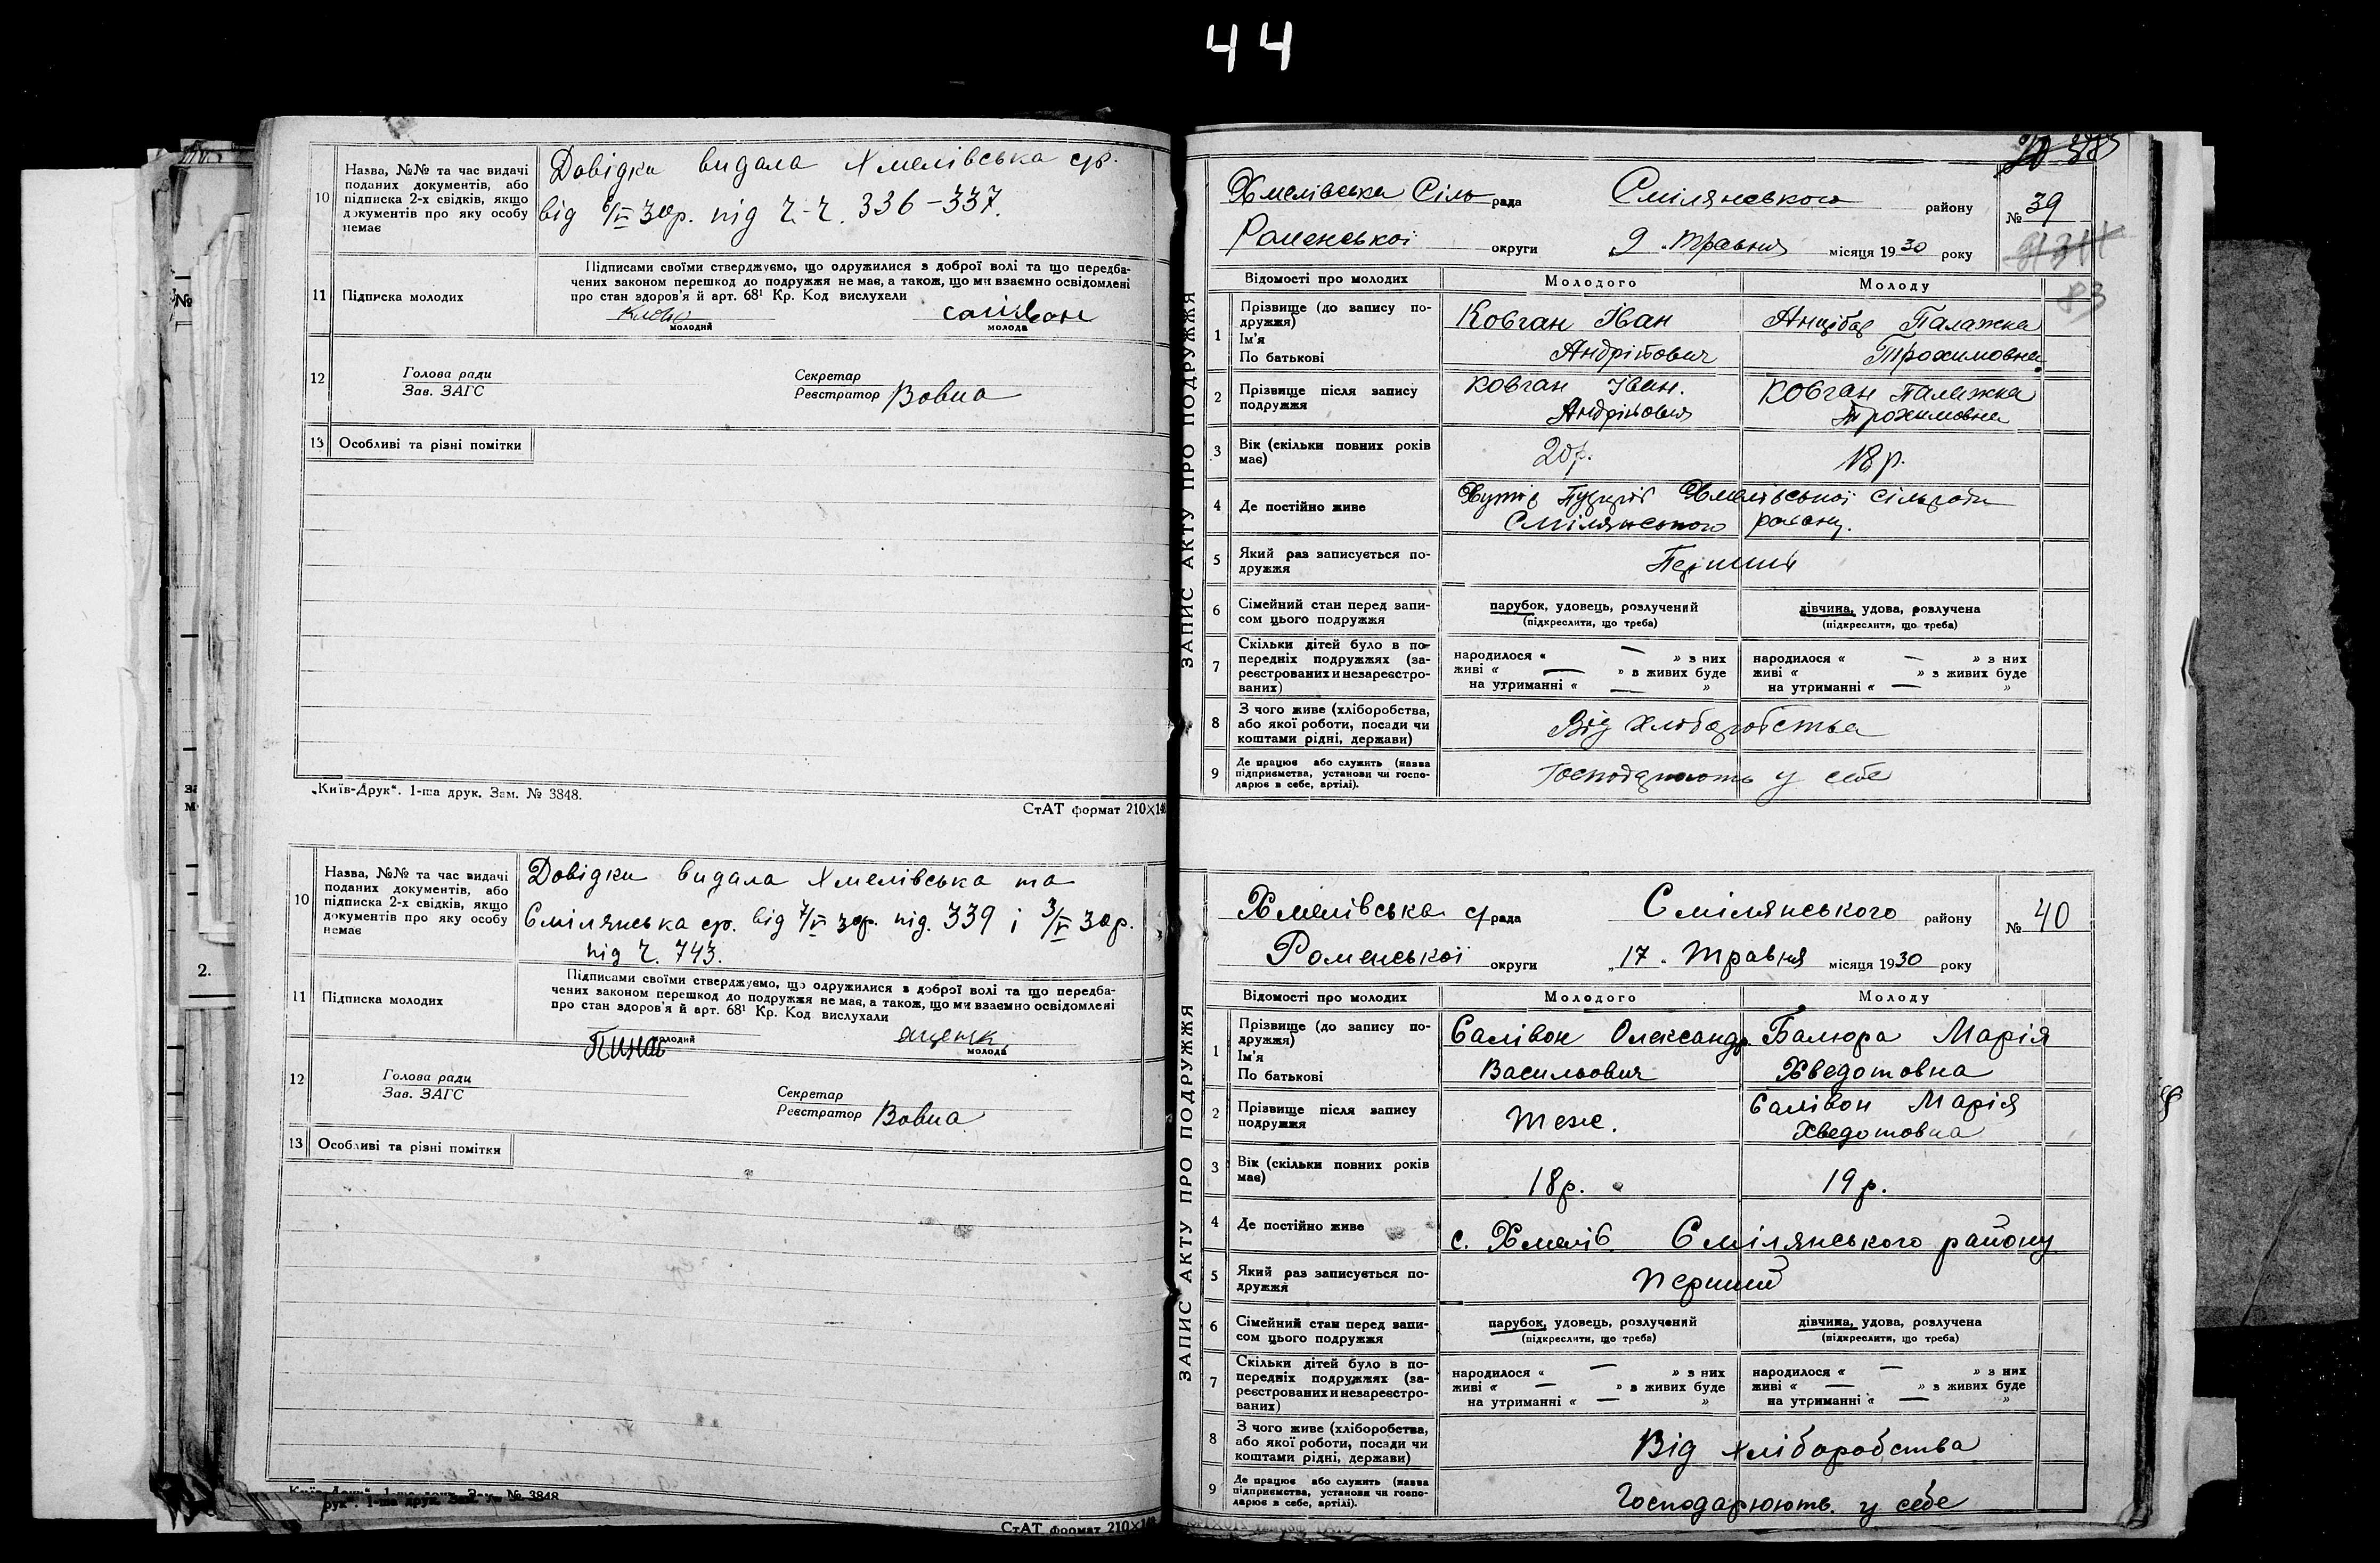 44
10
Назва, №№ та час видачі
поданих документів, або
підписка 2-х свідків, якщо
документів про яку особу
немає
Довідки видала Хмелівська ср.
від 6/V 30р. під ч.-ч. 336-337.
11
Підписка молодих
Підписами своїми стверджуємо, що одружилися з доброї волі та що передба-
чених законом перешкод до подружжя не має, а також, що ми взаємно освідомлені
про стан здоров'я й арт. 68¹ Кр. Код вислухали
молодий
молода
12
Голова ради
Зав. ЗАГС
Секретар
Реєстратор Вовна
13 Особливі та різні помітки
„Київ-Друк“. 1-ша друк. Зам. № 3848.
СтАТ формат 210×148
10
Назва, №№ та час видачі
поданих документів, або
підписка 2-х свідків, якщо
документів про яку особу
немає
Довідки видала Хмелівська та
Смілянська ср. від 7/V 30р. під. 339 і 3/V 30р.
під ч. 743.
11
Підписка молодих
Підписами своїми стверджуємо, що одружилися з доброї волі та що передба-
чених законом перешкод до подружжя не має, а також, що ми взаємно освідомлені
про стан здоров'я й арт. 68¹ Кр. Код вислухали
молодий
молода
12
Голова ради
Зав. ЗАГС
Секретар
Реєстратор Вовна
13 Особливі та різні помітки
рук“. 1-ша друк. Зам. № 3848
СтАТ формат 210×148
ЗАПИС АКТУ ПРО ПОДРУЖЖЯ
Хмелівська Сіль рада Смілянського району № 39
Роменської округи „9. Травня місяця 1930 року
83
Відомості про молодих
Молодого
Молоду
1
Прізвище (до запису по-
дружжя)
Ім'я
По батькові
Ковган Іван
Андрійович
Анцібор Палажка
Трохимовна
2
Прізвище після запису
подружжя
Ковган Іван.
Андрійович
Ковган Палажка
Трохимовна
3
Вік (скільки повних років
має)
20р.
18р.
4
Де постійно живе
Хутір Хмелівської сільради
Смілянського району.
5
Який раз записується по-
дружжя
Перший
6
Сімейний стан перед запи-
сом цього подружжя
парубок, удовець, розлучений
(підкреслити, що треба)
дівчина, удова, розлучена
(підкреслити, що треба)
7
Скільки дітей було в по-
передніх подружжях (за-
реєстрованих и незареєстро-
ваних)
народилося « — » з них
живі « — » з живих буде
на утриманні « — »
народилося « — » з них
живі « » з живих буде
на утриманні « — »
8
З чого живе (хліборобства,
або якої роботи, посади чи
коштами рідні, держави)
Від хліборобства
9
Де працює або служить (назва
підприємства, установи чи госпо-
дарює в себе, артілі).
Господарюють у себе
ЗАПИС АКТУ ПРО ПОДРУЖЖЯ
Хмелівська с/рада Смілянського району № 40
Роменської округи „17. Травня місяця 1930 року
Відомості про молодих
Молодого
Молоду
1
Прізвище (до запису по-
дружжя)
Ім'я
По батькові
Салівон Олександр
Васильович
Балюра Марія
Хведотовна
2
Прізвище після запису
подружжя
теж.
Салівон Марія
Хведотовна
3
Вік (скільки повних років
має)
18р.
19р.
4
Де постійно живе
с. Хмелів Смілянського району
5
Який раз записується по-
дружжя
перший
6
Сімейний стан перед запи-
сом цього подружжя
парубок, удовець, розлучений
(підкреслити, що треба)
дівчина, удова, розлучена
(підкреслити, що треба)
7
Скільки дітей було в по-
передніх подружжях (за-
реєстрованих и незареєстро-
ваних)
народилося « — » з них
живі « — » з живих буде
на утриманні « — »
народилося « — » з них
живі « — » з живих буде
на утриманні « — »
8
З чого живе (хліборобства,
або якої роботи, посади чи
коштами рідні, держави)
Від хліборобства
9
Де працює або служить (назва
підприємства, установи чи госпо-
дарює в себе, артілі).
Господарюють у себе